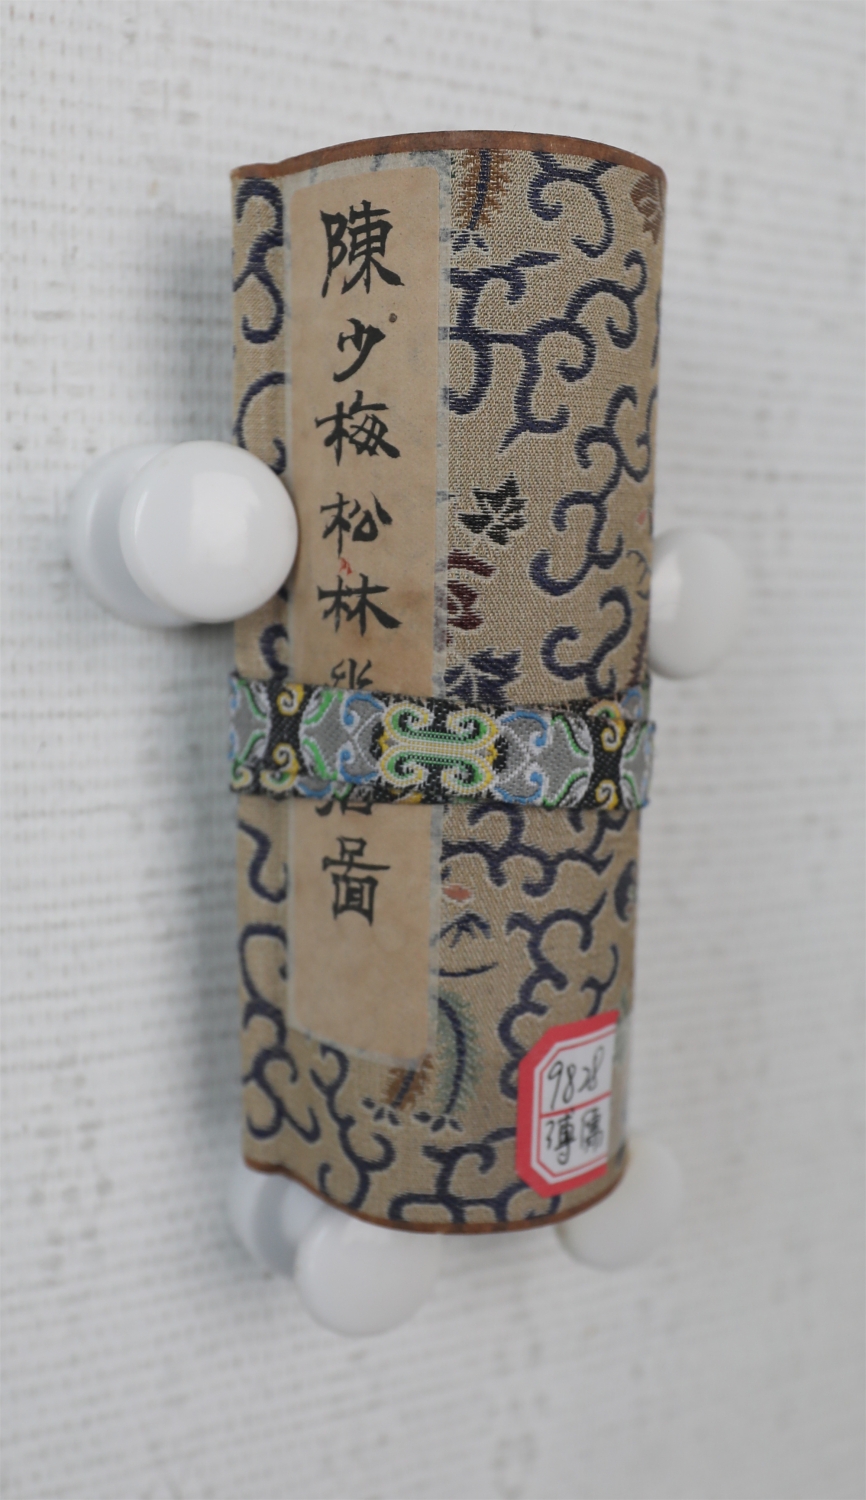 陳少梅松林
圖
9828
溥儒